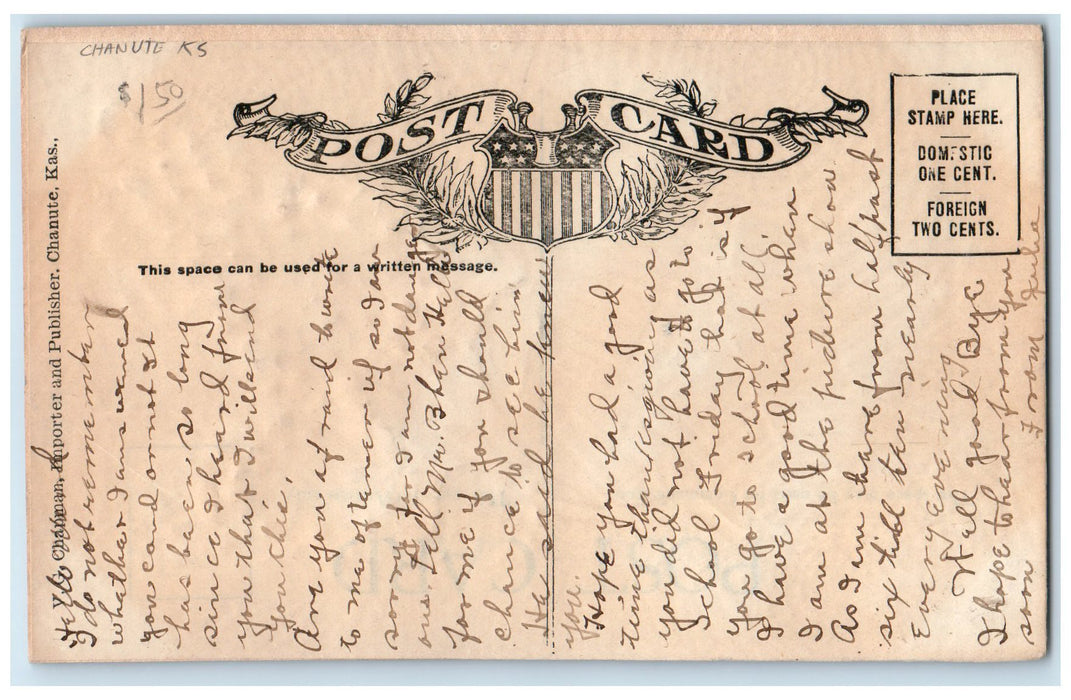 CHANUTE KS
$1.50
POST CARD
PLACE
STAMP HERE.
DOMESTIC
ONE CENT.
FOREIGN
TWO CENTS.
This space can be used for a written message.
Chapman, Importer and Publisher. Chanute, Kas.,
Hello
I do not remember
whather I answered
you card or not it
has been so long
since I heard from
you that I will send
you this.
Are you afraid to write
to me oftaner if so I am
sorry for I am not dange
ous Tell Mr. Bhen Hello
for me if you should
chance to see him
He said he knew
you.
Hope you had a good
time thanksgiving as
you did not have to go to
School Friday that is if
you go to school at all.
I have a good time when
I am at the picture show
As I am thare from half past
six till ten nearly
every evening
Well good Bye
I hope to hear from you
soon From Julia